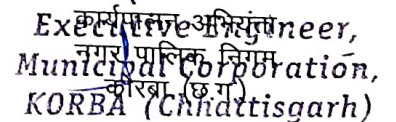 कार्यपालन अभियंता
Executive Engineer,
नगर पालिक निगम
Municipal Corporation,
कोरबा (छ.ग.)
KORBA (Chhattisgarh)